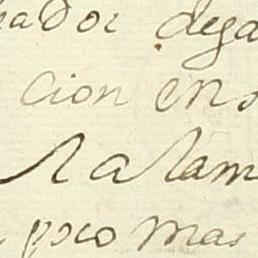 hador dega
cion en s
la lam
poco mas